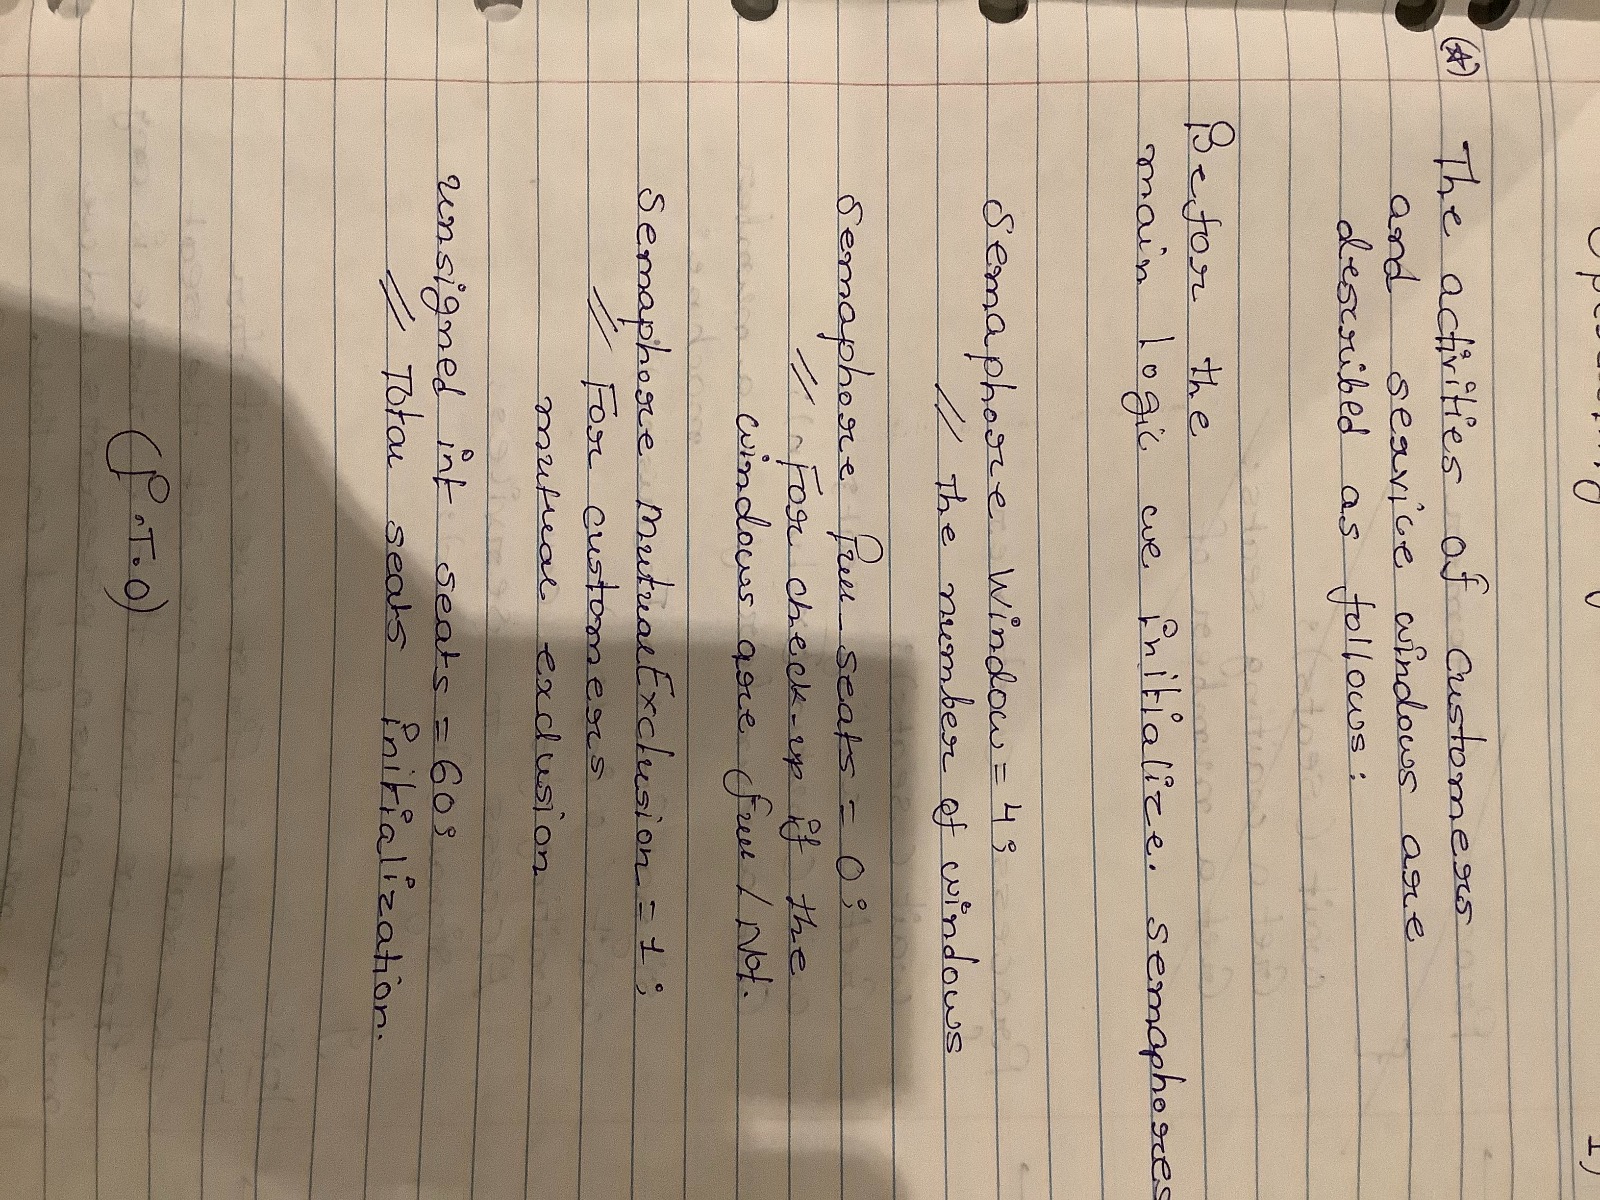 (☆) The activities of customers
and service windows are
described as follows:
Befor the
main logic we initialize. semaphores
Semaphore Window = 4;
// The number of windows
Semaphore free_seats = 0;
// For check-up if the
windows are free / Not.
Semaphore MutualExclusion = 1;
// For customers
mutual exclusion
unsigned int seats = 60;
// Total seats initialization.
(P.T.O)